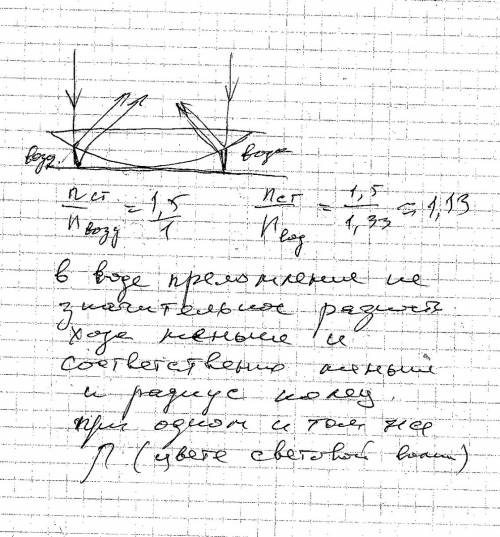 возд. вода
nст / nвозд = 1,5 / 1 nст / nвод = 1,5 / 1,33 = 1,13
в воде преломление не
значительное разность
хода меньше и
соответственно меньше
и радиус колец.
при одном и том же
λ (цвете световой волны)